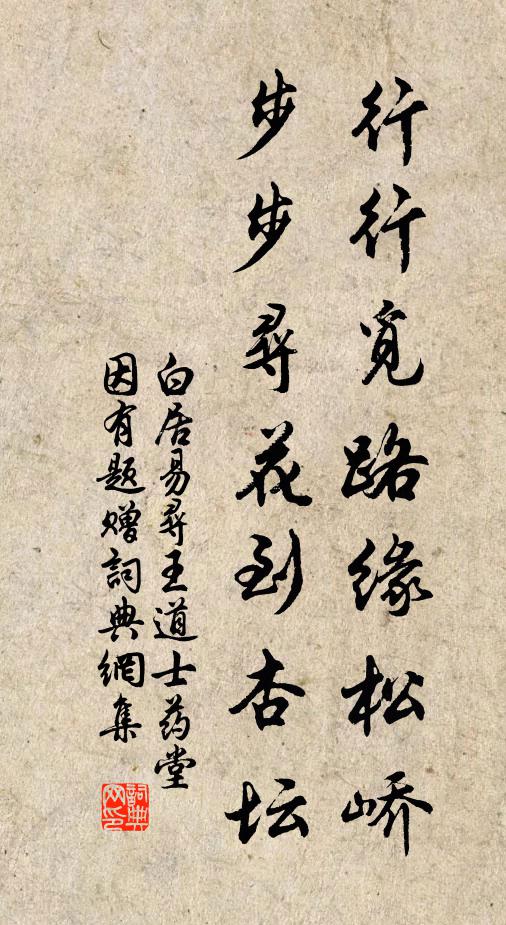 行行觅路缘松峤
步步尋花到杏坛
白居易尋王道士药堂
因有题赠詞典網集
詞典
网印